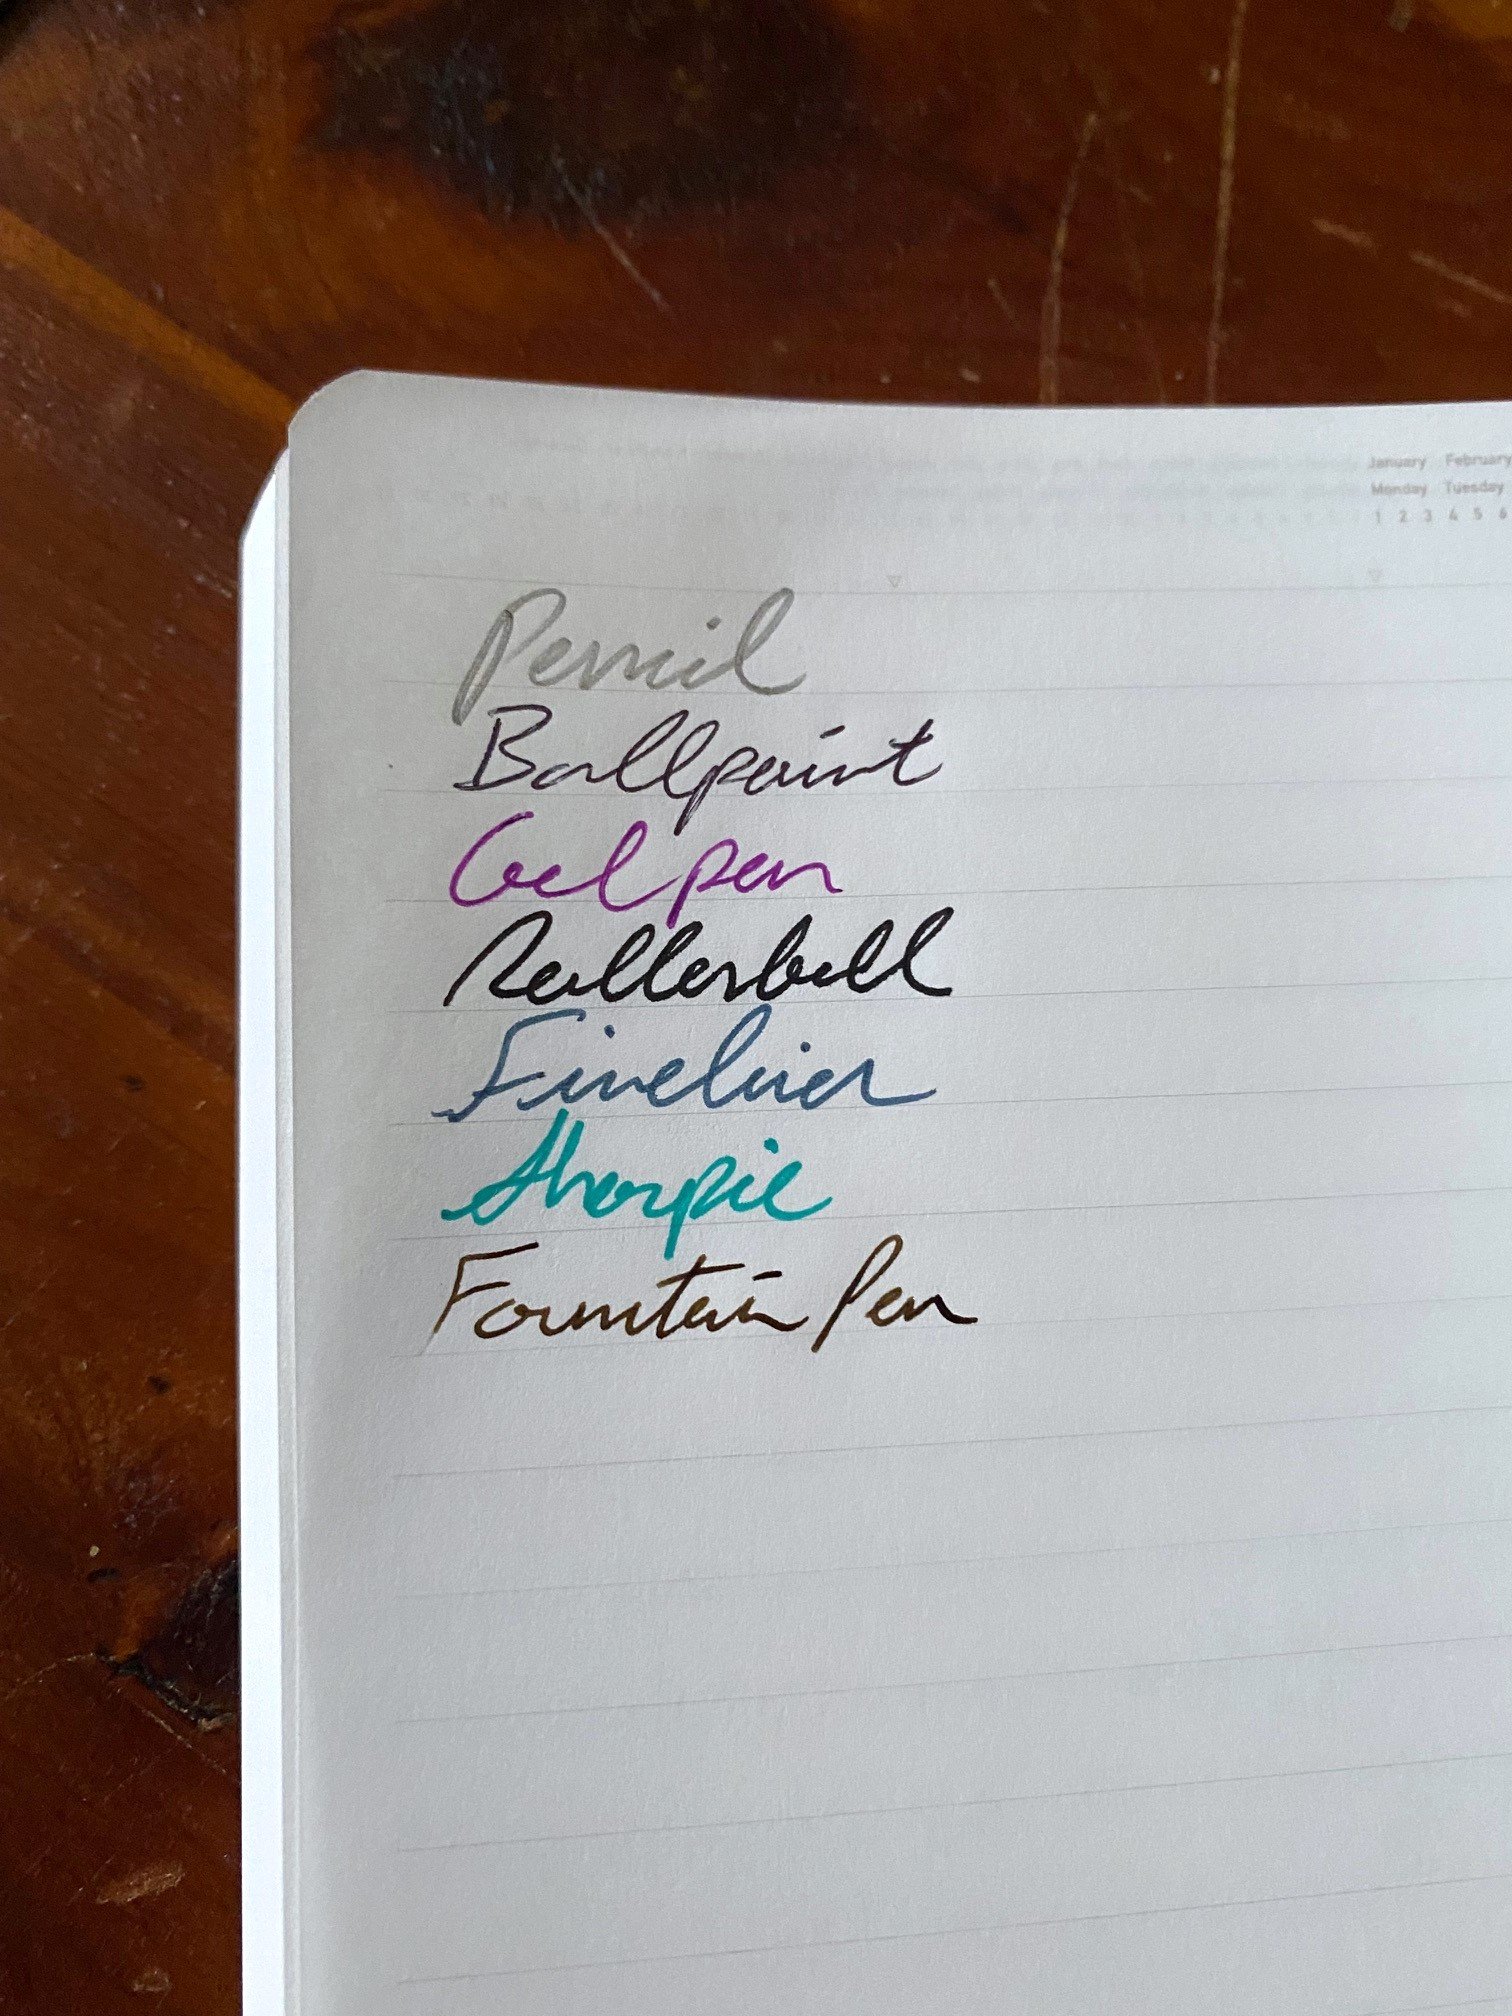 January February
Monday Tuesday
1 2 3 4 5 6
Pencil
Ballpoint
Gel pen
Rollerball
Fineliner
Sharpie
Fountain Pen